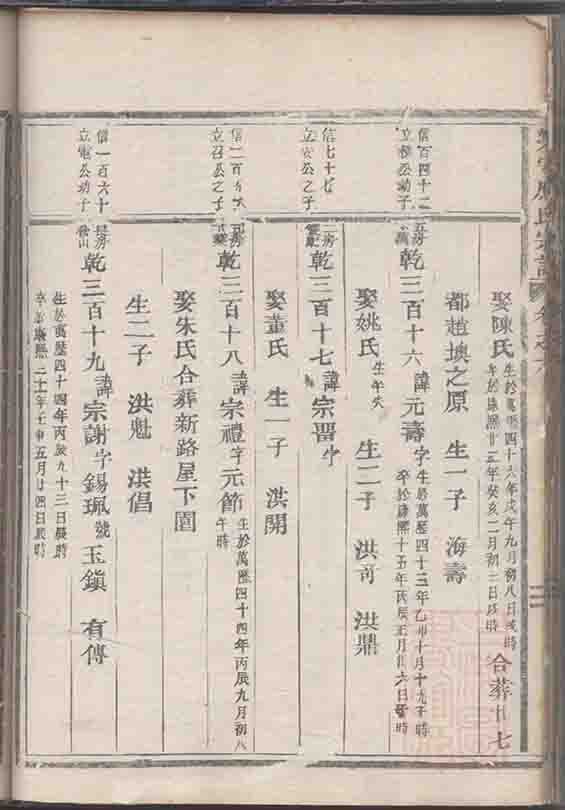 娶陳氏 生於萬歷四十六年戊午九月初八日戌時 卒於康熙廿二年癸亥二月初三日戌時 合葬十七
都趙墺之原 生一子 海壽
信百四十二
立 公幼子
乾三百十六 諱元壽字 生於萬歷四十三年乙卯十月十九子時 卒於康熙十五年丙辰五月廿六日 時
娶姚氏 生卒失 生二子 洪奇 洪鼎
信七十七
立安公之子
乾三百十七 諱宗晋字
娶董氏 生一子 洪開
信二百
立召公之子
乾三百十八 諱宗禮字元節 生於萬歷四十四年丙辰九月初八午時
娶朱氏合葬新路屋下園
生二子 洪魁 洪倡
信一百六十
立 公幼子
乾三百十九 諱宗謝字錫珮號玉鎮 有傳
生於萬歷四十四年丙辰九十三日辰時
卒於康熙二十一年壬申五月廿四日辰時